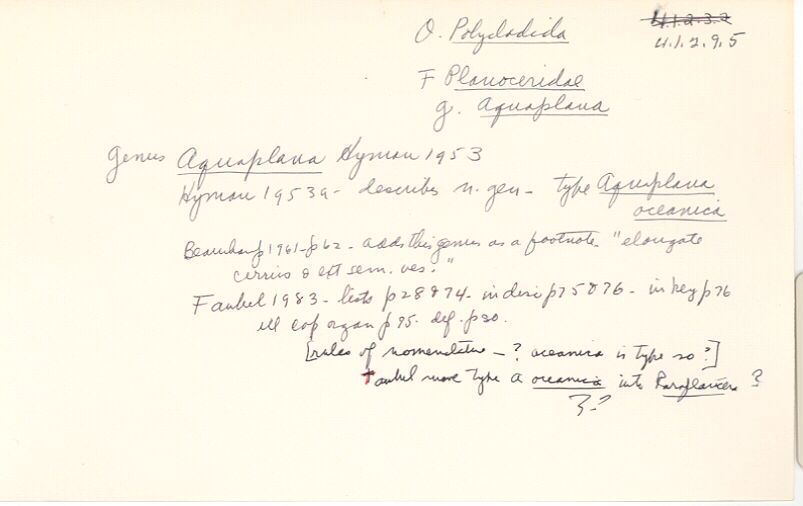 O. Polycladida
4.1.2.3.2
4.1.2.9.5
F Planoceridae
g. Aquaplana
Genus Aquaplana Hyman 1953
Hyman 1953a - describes n. gen - type Aquaplana
oceanica
Beauchamp 1961 - p 62 - adds this genus as a footnote "elongate
cirrus & ext sem. ves."
Faubel 1983 - lists p 28 & 74 - in disc p 75 & 76 - in key p 76
ill cop organ p 95. def. p 80.
[rules of nomenclature - ? oceanica is type so ?]
Faubel move type A oceanica into ?
? ?